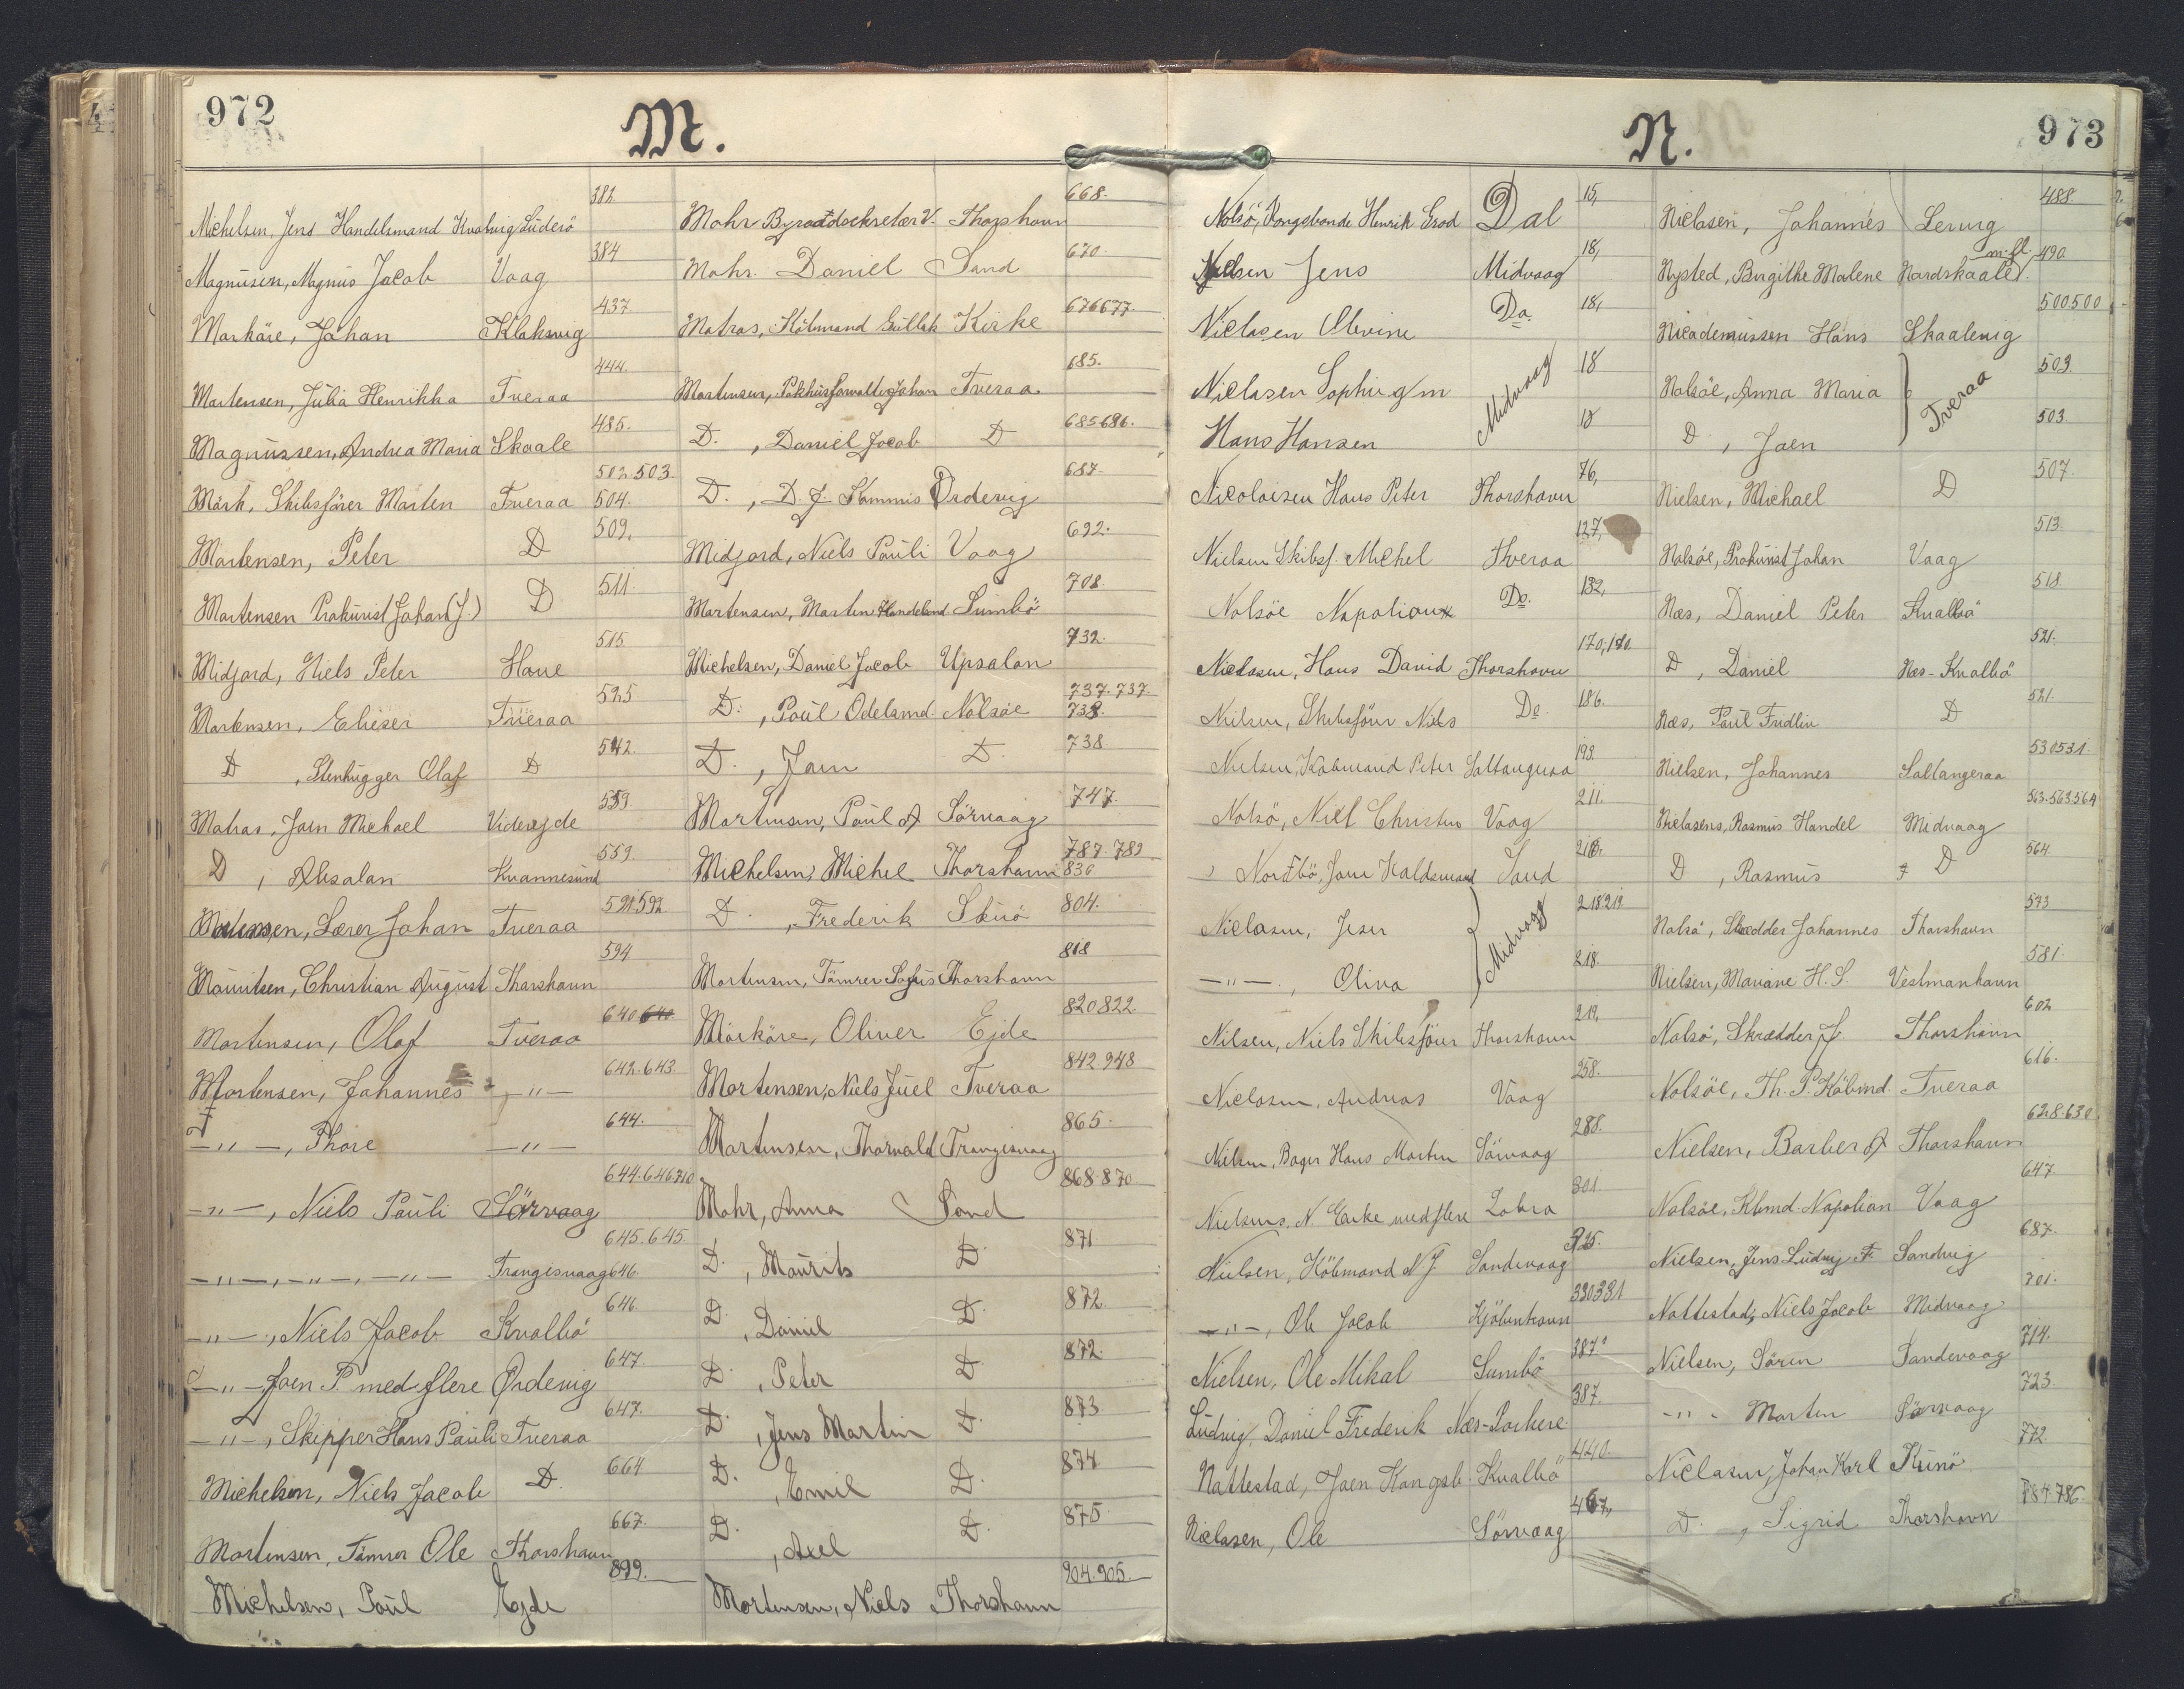 972
M.
Michelsen, Jens Handelsmand Kvalvig Süderö 382.
Magnüsen, Magnüs Jacob Vaag 384
Markäre, Johan Klaksvig 437.
Martensen, Jülia Henrikka Tveraa 444.
Magnüssen, Andrea Maria Skaale 485.
Mörk, Skibsförer Morten Tveraa 502.503. 504.
Mortensen, Peter D 509.
Mortensen Proküvist Johan (J.) D 511.
Midjord, Niels Peter Hove 515.
Mortensen, Elieser Tveraa 525
D , Stenhügger Olaf D 542.
Matras, Joen Michael Viderejde 559.
D , Absalon Kvannesünd 559.
Mortensen, Lærer Johan Tveraa 591.592.
Mouritsen, Christian Augüst Thorshavn 594
Mortensen, Olaf Tveraa 640 640.
Mortensen, Johannes -"- 642.643.
-"-, Thore -"- 644.
-"-, Niels Pauli Sörvaag 644.646.710
-"-, -"-, -"- Trangisvaag 645.645. 646.
-"-, Niels Jacob Kvalbö 646.
-"- Joen P. med flere Ørdevig 647.
-"-, Skipper Hans Pauli Tveraa 647.
Michelsen, Niels Jacob D. 664
Mortensen, Tömrer Ole Thorshavn 667.
Michelsen, Poül Ejde 899.
Mohr Byraadssekretær V. Thorshavn 668.
Mohr. Daniel Sand 670.
Matras, Köbmand Güllak Kirke 676677.
Mortensen, Pakhüsforvalter Johan Tveraa 685.
D. , Daniel Jacob D 685686.
D. , D. J. Ørdevig 687.
Midjord, Niels Pauli Vaag 692.
Mortensen, Morten Handelsmd Sumbö 708.
Michelsen, Daniel Jacob Upsalon 732.
D. , Poül Odelsmd. Nolsöe 737.737. 738.
D. , Joen D. 738.
Mortensen, Poül A Sörvaag 747.
Michelsen, Michel Thorshavn 787.789. 836
D. , Frederik Sküö 804.
Mortensen, Tömrer Sofüs Thorshavn 818
Mörköre, Oliver Ejde 820822.
Mortensen, Niels Jüel Tveraa 842.948
Mortensen, Thorvald Trangisvaag 865.
Mohr, Anna Sand 868.870.
D. , Maürits D. 871
D. , Daniel D. 872.
D. , Peter D. 872.
D. , Jens Martin D. 873
D. , Emil D. 874
D. , Axel D. 875
Mortensen, Niels Thorshavn 904.905.
973
N.
Nolsö, Kongsbonde Henrik Dal 15,
Nielsen Jens Midvaag 18,
Niclasen Olevine Do. 18,
Niclasen Sophie g/m Midvaag 18
Hans Hansen 18
Nicolaisen Hans Peter Thorshavn 76,
Nielsen Skibsf. Michel Tveraa 127,
Nolsöe Napolion Do. 132,
Niclasen, Hans David Thorshavn 170,180.
Nielsen, Skibsförer Niels Do 186.
Nielsen, Köbmand Peter Saltangeraa 193.
Nolsö, Niel Christen Vaag 211.
Nordbö, Joen Haldsmand Sand 218.
Niclasen, Jeser Midvaag 218219.
-"-, Oliva 218.
Nilsen, Niels Skibsförer Thorshavn 219.
Niclasen, Andreas Vaag 258.
Nilsen, Bager Hans Martin Sörvaag 288.
Nielsens, N. Enke med flere Zobra 301
Nielsen, Köbmand N J Sandevaag 325.
-"-, Ole Jacob Kjöbenhavn 330331
Nielsen, Ole Mikal Sumbö 387.
Ludvig, Daniel Frederik Næs-Porkere 387.
Nattestad, Joen Kongsb. Kvalbö 440.
Niclasen, Ole Sörvaag 467,
Niclasen, Johannes Lervig 488.
Nysted, Birgithe Malene m. fl. Hardskaale 490
Nicademüssen Hans Skaalevig 500500
Nolsöe, Anna Maria Tveraa 503.
D , Joen 503.
Nielsen, Michael D 507.
Nolsöe, Proküvist Johan Vaag 513.
Næs, Daniel Peter Kvalbö 518.
D , Daniel Næs-Kvalbö 521.
Næs, Poül Fridlin D 521.
Nielsen, Johannes Saltangeraa 530531.
Niclasens, Rasmüs Handel Midvaag 563.563.564
D , Rasmüs D 564.
Nolsö, Skrædder Johannes Thorshavn 573
Nielsen, Mariane H. S. Vestmanhavn 581.
Nolsö, Skrædder J. Thorshavn 602
Nolsöe, Th. P. Köbmd. Tveraa 616.
Nielsen, Barber A Thorshavn 628.630
Nolsöe, Kbmd. Napolian Vaag 647.
Nielsen, Jens Ludvig F. Sandvig 687.
Nattestad, Niels Jacob Midvaag 701.
Nielsen, Sören Sandevaag 714.
-"- Morten Sörvaag 723.
Niclasen, Johan Karl Künö 772.
D. , Sigrid Thorshavn 784.786.